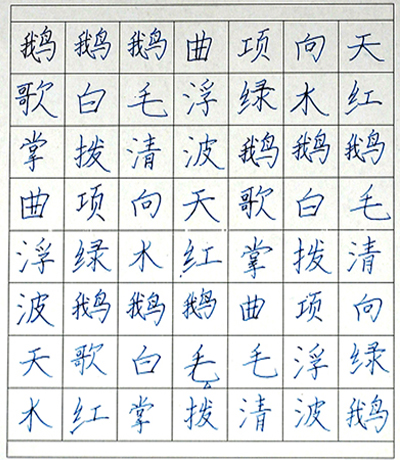 鹅鹅鹅曲项向天
歌白毛浮绿水红
掌拨清波鹅鹅鹅
曲项向天歌白毛
浮绿水红掌拨清
波鹅鹅鹅曲项向
天歌白毛毛浮绿
水红掌拨清波鹅